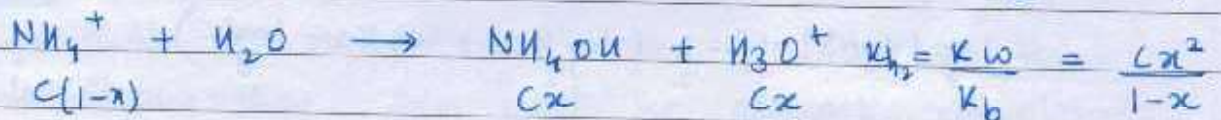 NH₄⁺ + H₂O ⟶ NH₄OH + H₃O⁺ Kh₂ = Kw/Kb = Cx²/1-x
C(1-x) Cx Cx